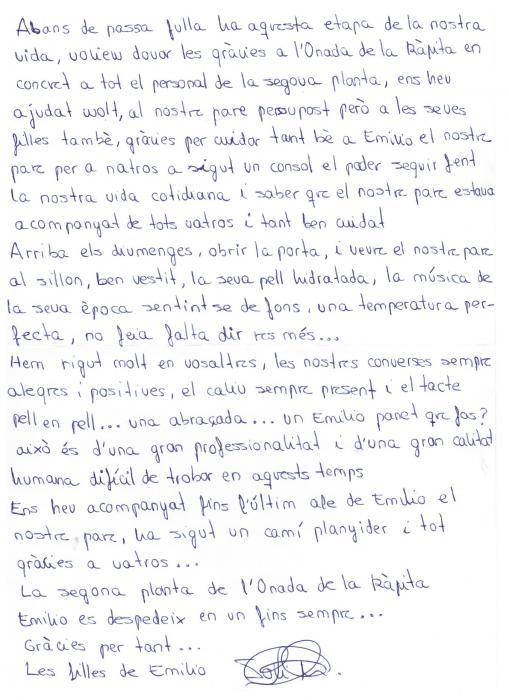 Abans de passa fulla ha aquesta etapa de la nostra
vida, voliem donar les gràcies a l'Onada de la Ràpita en
concret a tot el personal de la segona planta, ens heu
ajudat molt, al nostre pare persupost però a les seves
filles tambè, gràcies per cuidar tant bè a Emilio el nostre
pare per a natros a sigut un consol el poder seguir fent
la nostra vida cotidiana i saber que el nostre pare estava
acompanyat de tots vatros i tant ben cuidat
Arriba els diumenges, obrir la porta, i veure el nostre pare
al sillon, ben vestit, la seva pell hidratada, la música de
la seva època sentintse de fons, una temperatura per-
fecta, no feia falta dir res més...
Hem rigut molt en vosaltres, les nostres converses sempre
alegres i positives, el caliu sempre present i el tacte
pell en pell... una abraçada... un Emilio panet que fas?
això és d'una gran professionalitat i d'una gran calitat
humana difícil de trobar en aquests temps
Ens heu acompanyat fins l'últim ale de Emilio el
nostre pare, ha sigut un camí planyider i tot
gràcies a vatros...
La segona planta de l'Onada de la Ràpita
Emilio es despedeix en un fins sempre...
Gràcies per tant...
Les filles de Emilio